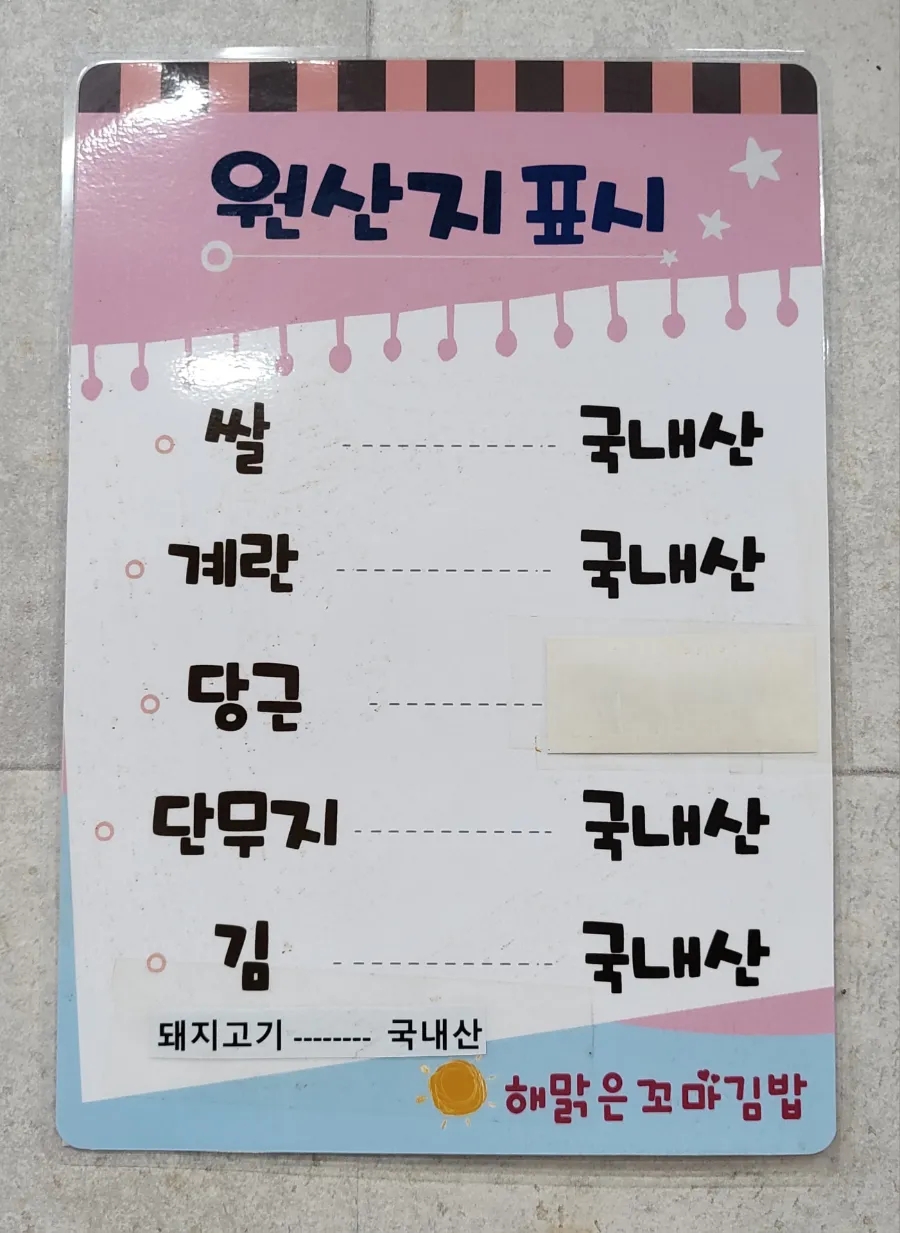 원산지 표시
쌀 ---------------- 국내산
계란 ---------------- 국내산
당근 -------------
단무지 --------------- 국내산
김 ---------------- 국내산
돼지고기 -------- 국내산
해맑은 꼬마김밥